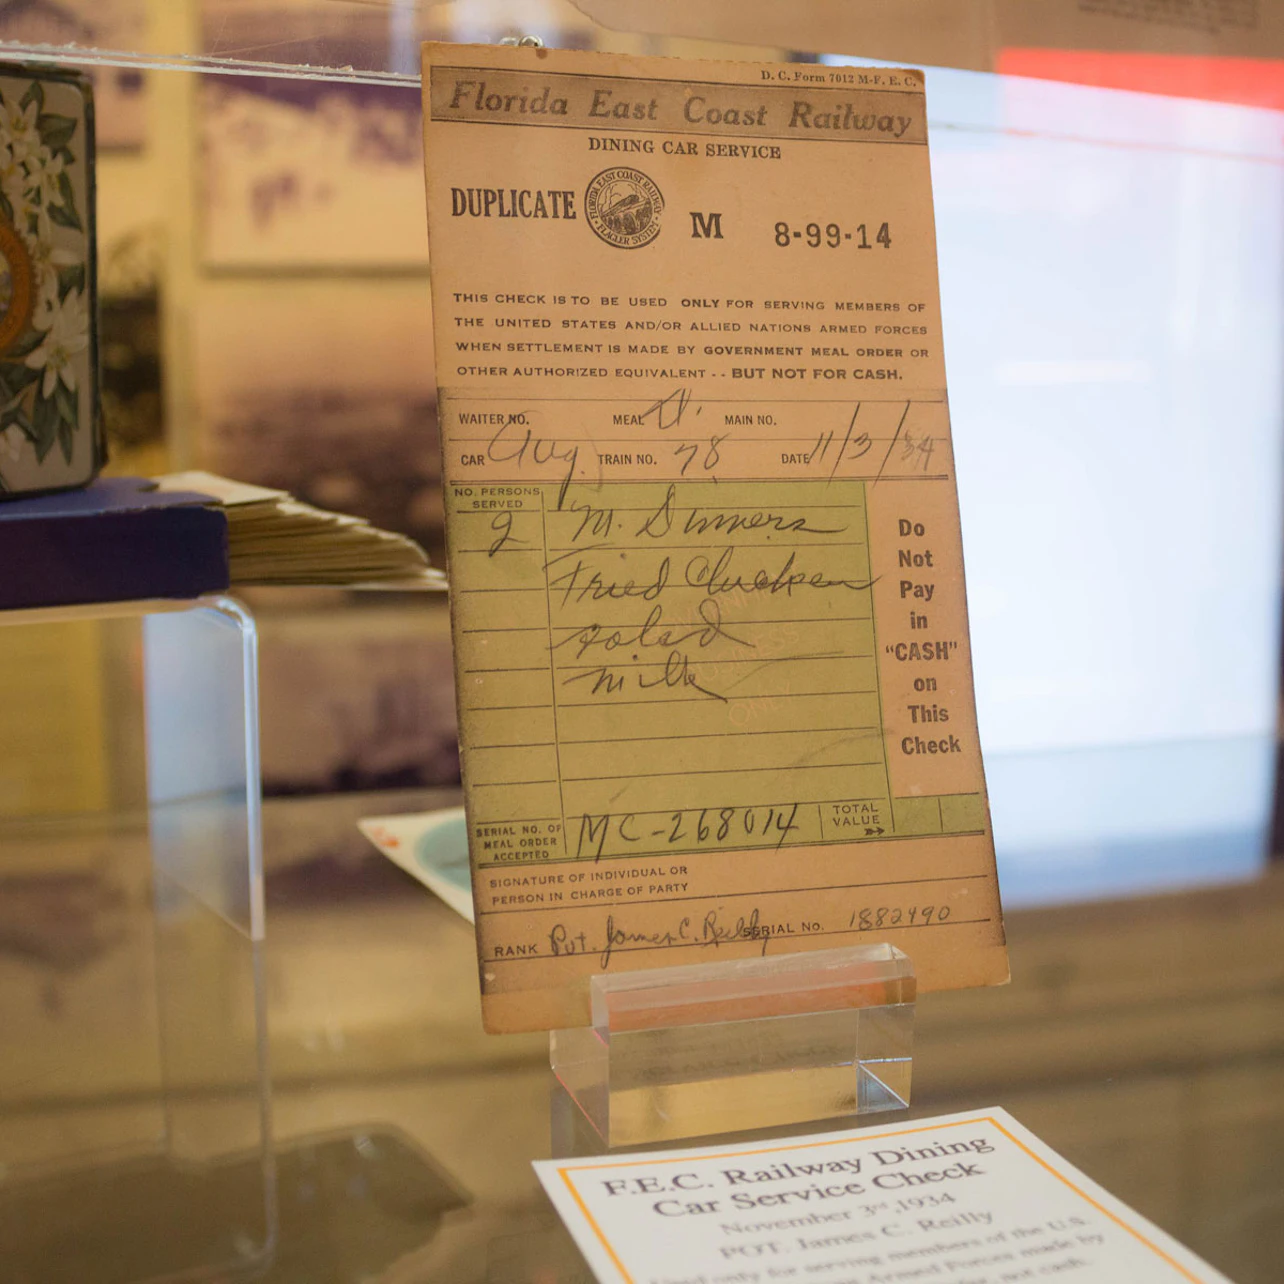 D. C. Form 7012 M-F. E. C.
Florida East Coast Railway
DINING CAR SERVICE
DUPLICATE
FLORIDA EAST COAST RAILWAY
FLAGLER SYSTEM
M 8-99-14
THIS CHECK IS TO BE USED ONLY FOR SERVING MEMBERS OF
THE UNITED STATES AND/OR ALLIED NATIONS ARMED FORCES
WHEN SETTLEMENT IS MADE BY GOVERNMENT MEAL ORDER OR
OTHER AUTHORIZED EQUIVALENT - - BUT NOT FOR CASH.
WAITER NO. MEAL D. MAIN NO.
CAR Aug. TRAIN NO. 78 DATE 11/3/34
NO. PERSONS
SERVED
2 M. Dinners
Fried Chicken
salad
milk
Do
Not
Pay
in
"CASH"
on
This
Check
BUSINESS
ONLY
SERIAL NO. OF
MEAL ORDER
ACCEPTED
MC-268014
TOTAL
VALUE
SIGNATURE OF INDIVIDUAL OR
PERSON IN CHARGE OF PARTY
RANK Pvt. James C. Reilly SERIAL NO. 1882490
F.E.C. Railway Dining
Car Service Check
November 3rd, 1934
POT. James C. Reilly
Used only for serving members of the U.S.
Armed Forces made by
not cash.